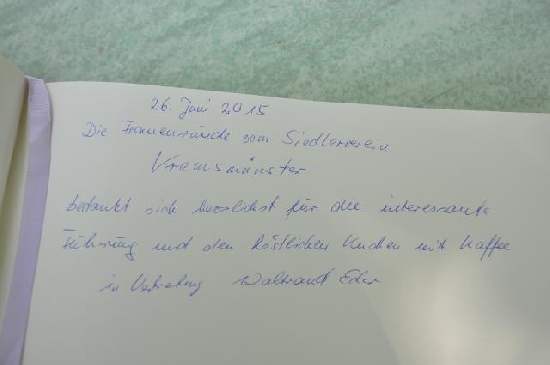 26. Juni 2015
Die Frauenrunde vom Siedlerverein
Kremsmünster
bedankt sich herzlichst für die interessante
Führung und den köstlichen Kuchen mit Kaffee
in Vertretung Waltraud Eder